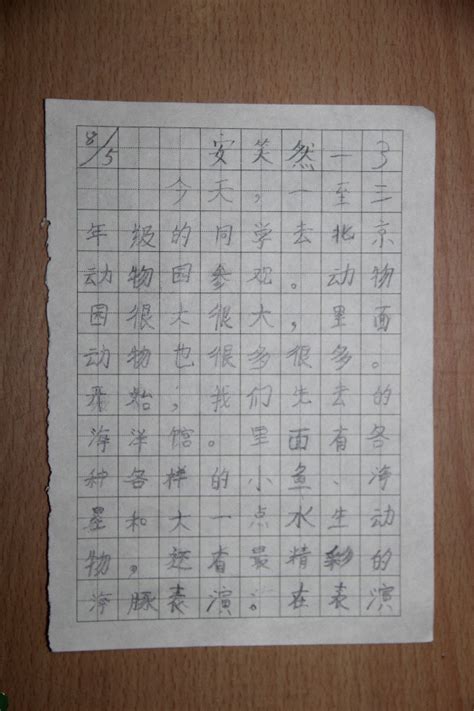 8/5 安笑然一3
今天，一至三
年级的同学去北京
动物园参观。动物
园很大很大，里面
动物也很多很多。
开始，我们先去的
海洋馆。里面有各
种各样的小鱼、海
星和大一点水生动
物，还有最精彩的
海豚表演。在表演